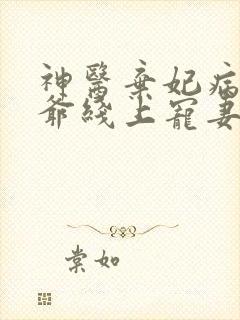 神醫棄妃病
爺綫上寵妻
棠如